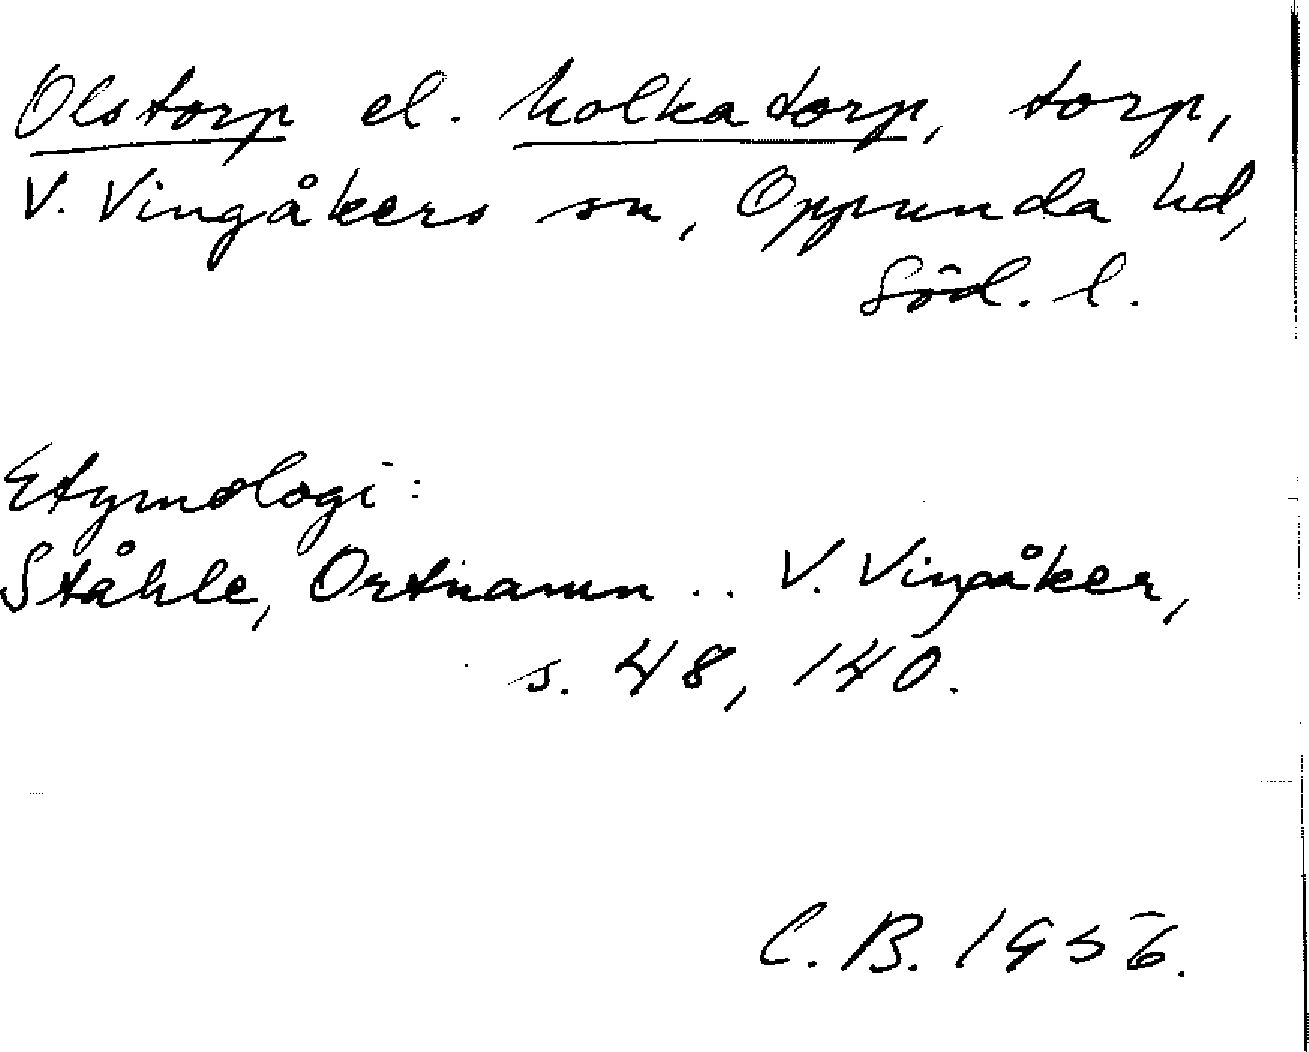 Olstorp el. Holkatorp, torp,
V. Vingåkers sn, Oppunda hd,
Söd. l.
Etymologi:
Ståhle, Ortnamn .. V. Vingåker,
s. 48, 140.
C. B. 1956.